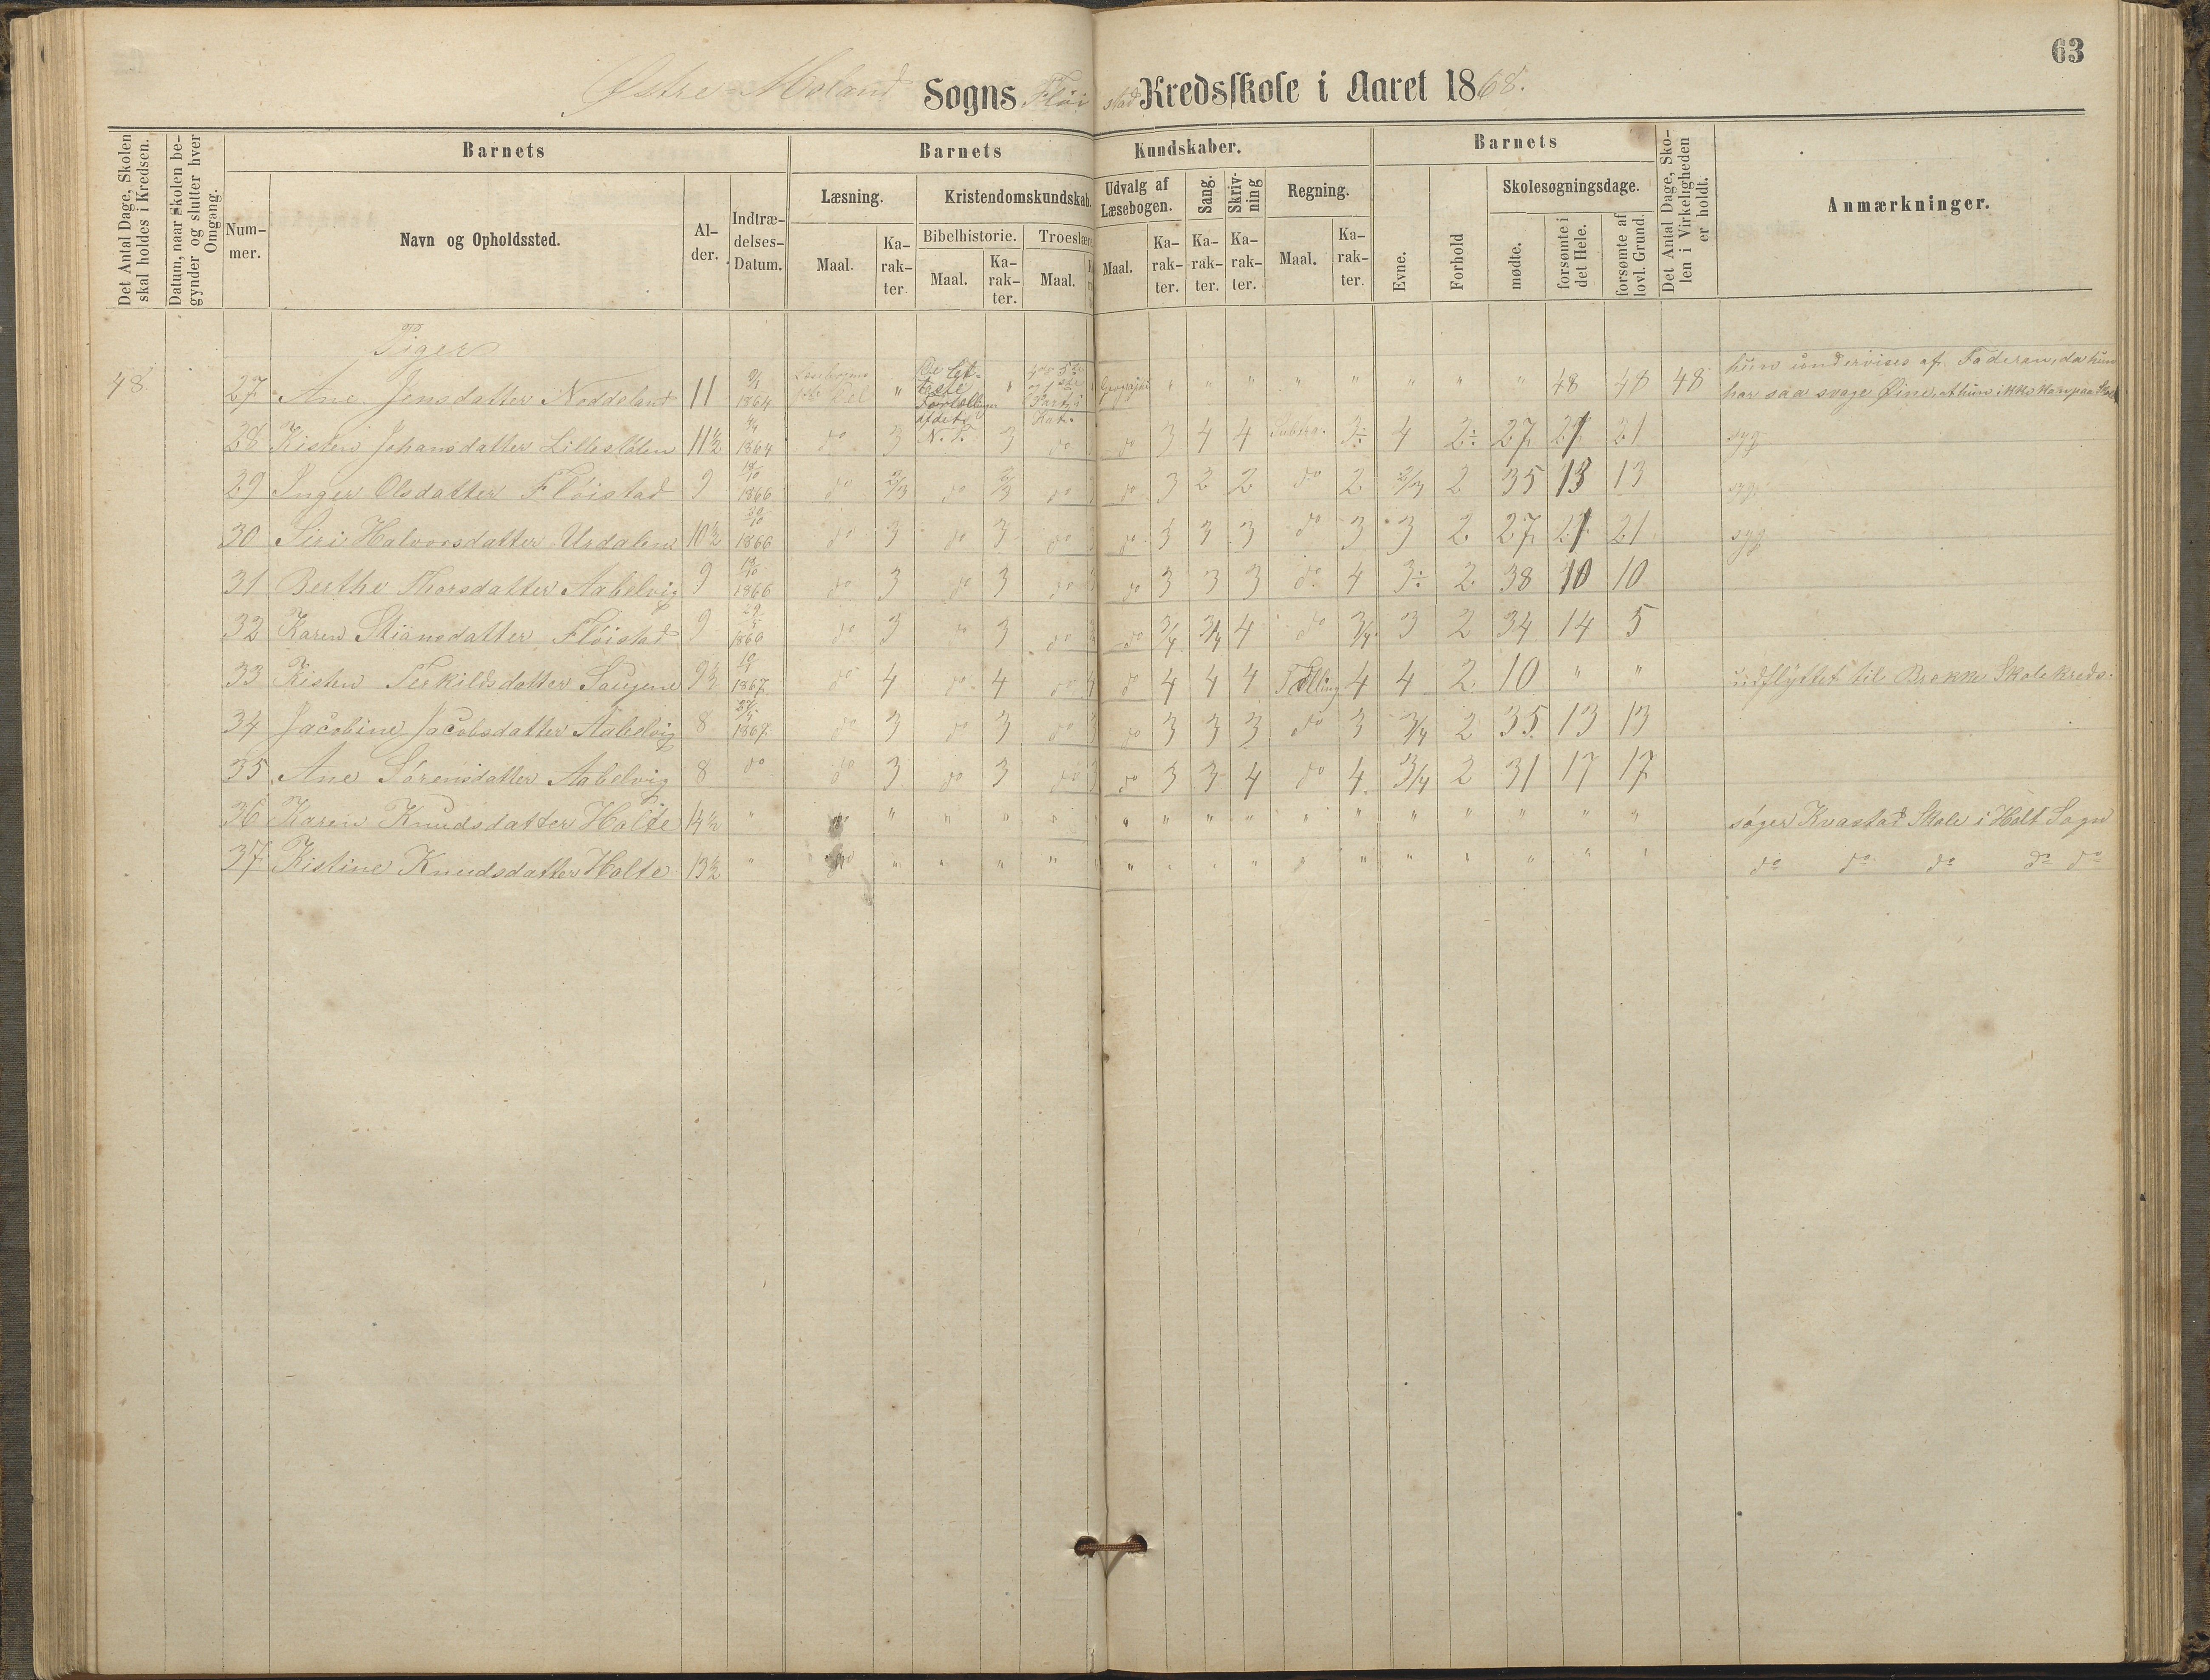 63
Østre-Moland Sogns Fløistad Kredsskole i Aaret 1868.
Det Antal Dage, Skolen skal holdes i Kredsen.
Datum, naar Skolen begynder og slutter hver Omgang.
Barnets
Nummer.
Navn og Opholdssted.
Alder.
Indtrædelses-Datum.
Barnets Kundskaber.
Læsning.
Maal.
Karakter.
Kristendomskundskab.
Bibelhistorie.
Maal.
Karakter.
Troeslære
Maal.
Udvalg af Læsebogen.
Maal.
Karakter.
Sang.
Karakter.
Skrivning
Karakter.
Regning.
Maal.
Karakter.
Barnets
Evne.
Forhold
Skolesøgningsdage.
mødte.
forsømte i det Hele.
forsømte af lovl. Grund.
Det Antal Dage, Skolen i Virkeligheden er holdt.
Anmærkninger.
Piger
48 27 Ane Jensdatter Noddeland 11 1864 " " " " " " " " " " " 48 48 48 hun undervises af Faderen, da hun har saa svage Øine, at hun ikke kan paa Skole
28 Kisten Johansdatter Lillesølen 11½ 1864 do 3 N. T. 3 do do 3 4 4 3÷ 4 2÷ 27 21 21 syg
29 Inger Olsdatter Fløistad 9 1866 do 2/3 do 2/3 do do 3 2 2 do 2 2/3 2 35 13 13 syg
30 Siri Halvorsdatter Urdalen 10½ 1866 do 3 do 3 do do 3 3 3 do 3 3 2 27 21 21 syg
31 Berthe Thorsdatter Aabelvig 9 1866 do 3 do 3 do do 3 3 3 do 4 3÷ 2 38 10 10
32 Karen Stiansdatter Fløistad 9 do 3 do 3 do do 3/4 3/4 4 do 3/4 3 2 34 14 5
33 Kisten Terkildsdatter Saugene 9½ 1867 do 4 do 4 do 4 do 4 4 4 Tælling 4 4 2 10 " " udflyttet til Brekke Skolekreds.
34 Jacobine Jacobsdatter Aabelvig 8 1867 do 3 do 3 do 3 do 3 3 3 do 3 3/4 2 35 13 13
35 Ane Sørensdatter Aabelvig 8 do do 3 do 3 do 3 do 3 3 4 do 4 3/4 2 31 17 17
36 Karen Knudsdatter Holte 14½ " " " " " " " " " " " " " " " " søger Kvastad Skole i Holt Sogn
37 Kistine Knudsdatter Holte 13½ " " " " " " " " " " " " " " " " do do do do do